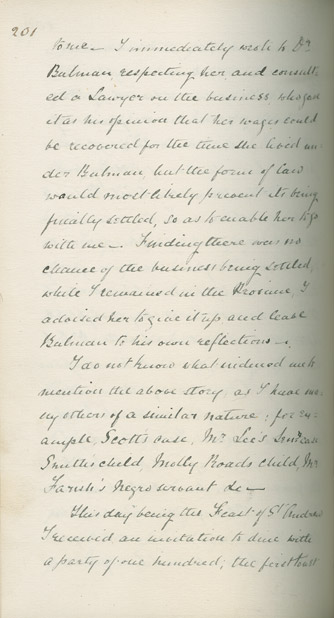 201
to me — I immediately wrote to Dr
Bulman respecting her, and consult
ed a Lawyer on the business, who gave
it as his opinion that her wages could
be recovered for the time she lived un
der Bulman, but the form of law
would most likely prevent its being
finally settled, so as to enable her to go
with me —. Finding there was no
chance of the business being settled,
while I remained in the Province, I
advised her to give it up and leave
Bulman to his own reflections —.
I do not know what induced me to
mention the above story, as I have ma
ny others of a similar nature; for ex-
ample, Scott's case, Mr Lee's, Senr case
Smiths child, Molly Roads child, Mr
Farish's Negro servant &c —
This day being the Feast of St Andrew
I received an invitation to dine with
a party of one hundred; the first toast